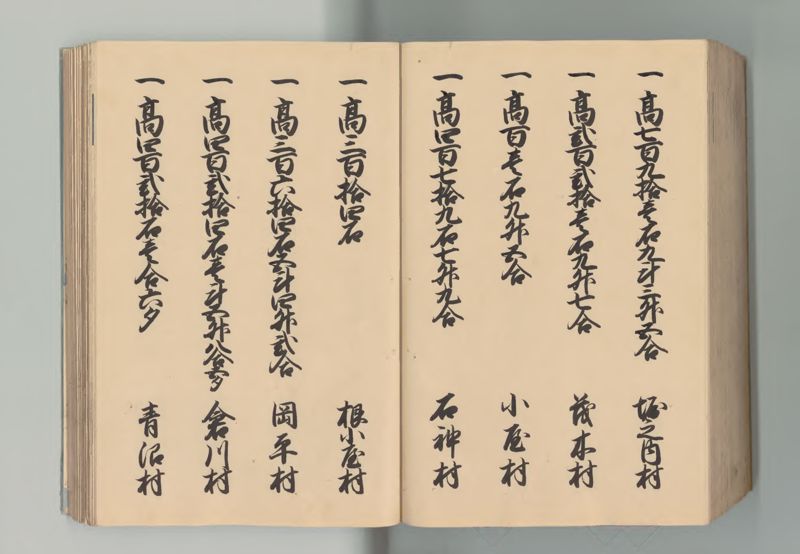 一 高七百九拾壱石九斗三升五合 堀之内村
一 高弐百弐拾壱石九升七合 茂木村
一 高百壱石九升五合 小屋村
一 高四百七拾九石七升九合 石神村
一 高三百拾四石 根小屋村
一 高三百六拾四石五斗四升弐合 岡平村
一 高四百弐拾四石壱斗五升八合五夕 倉川村
一 高四百弐拾石壱合六夕 青沼村